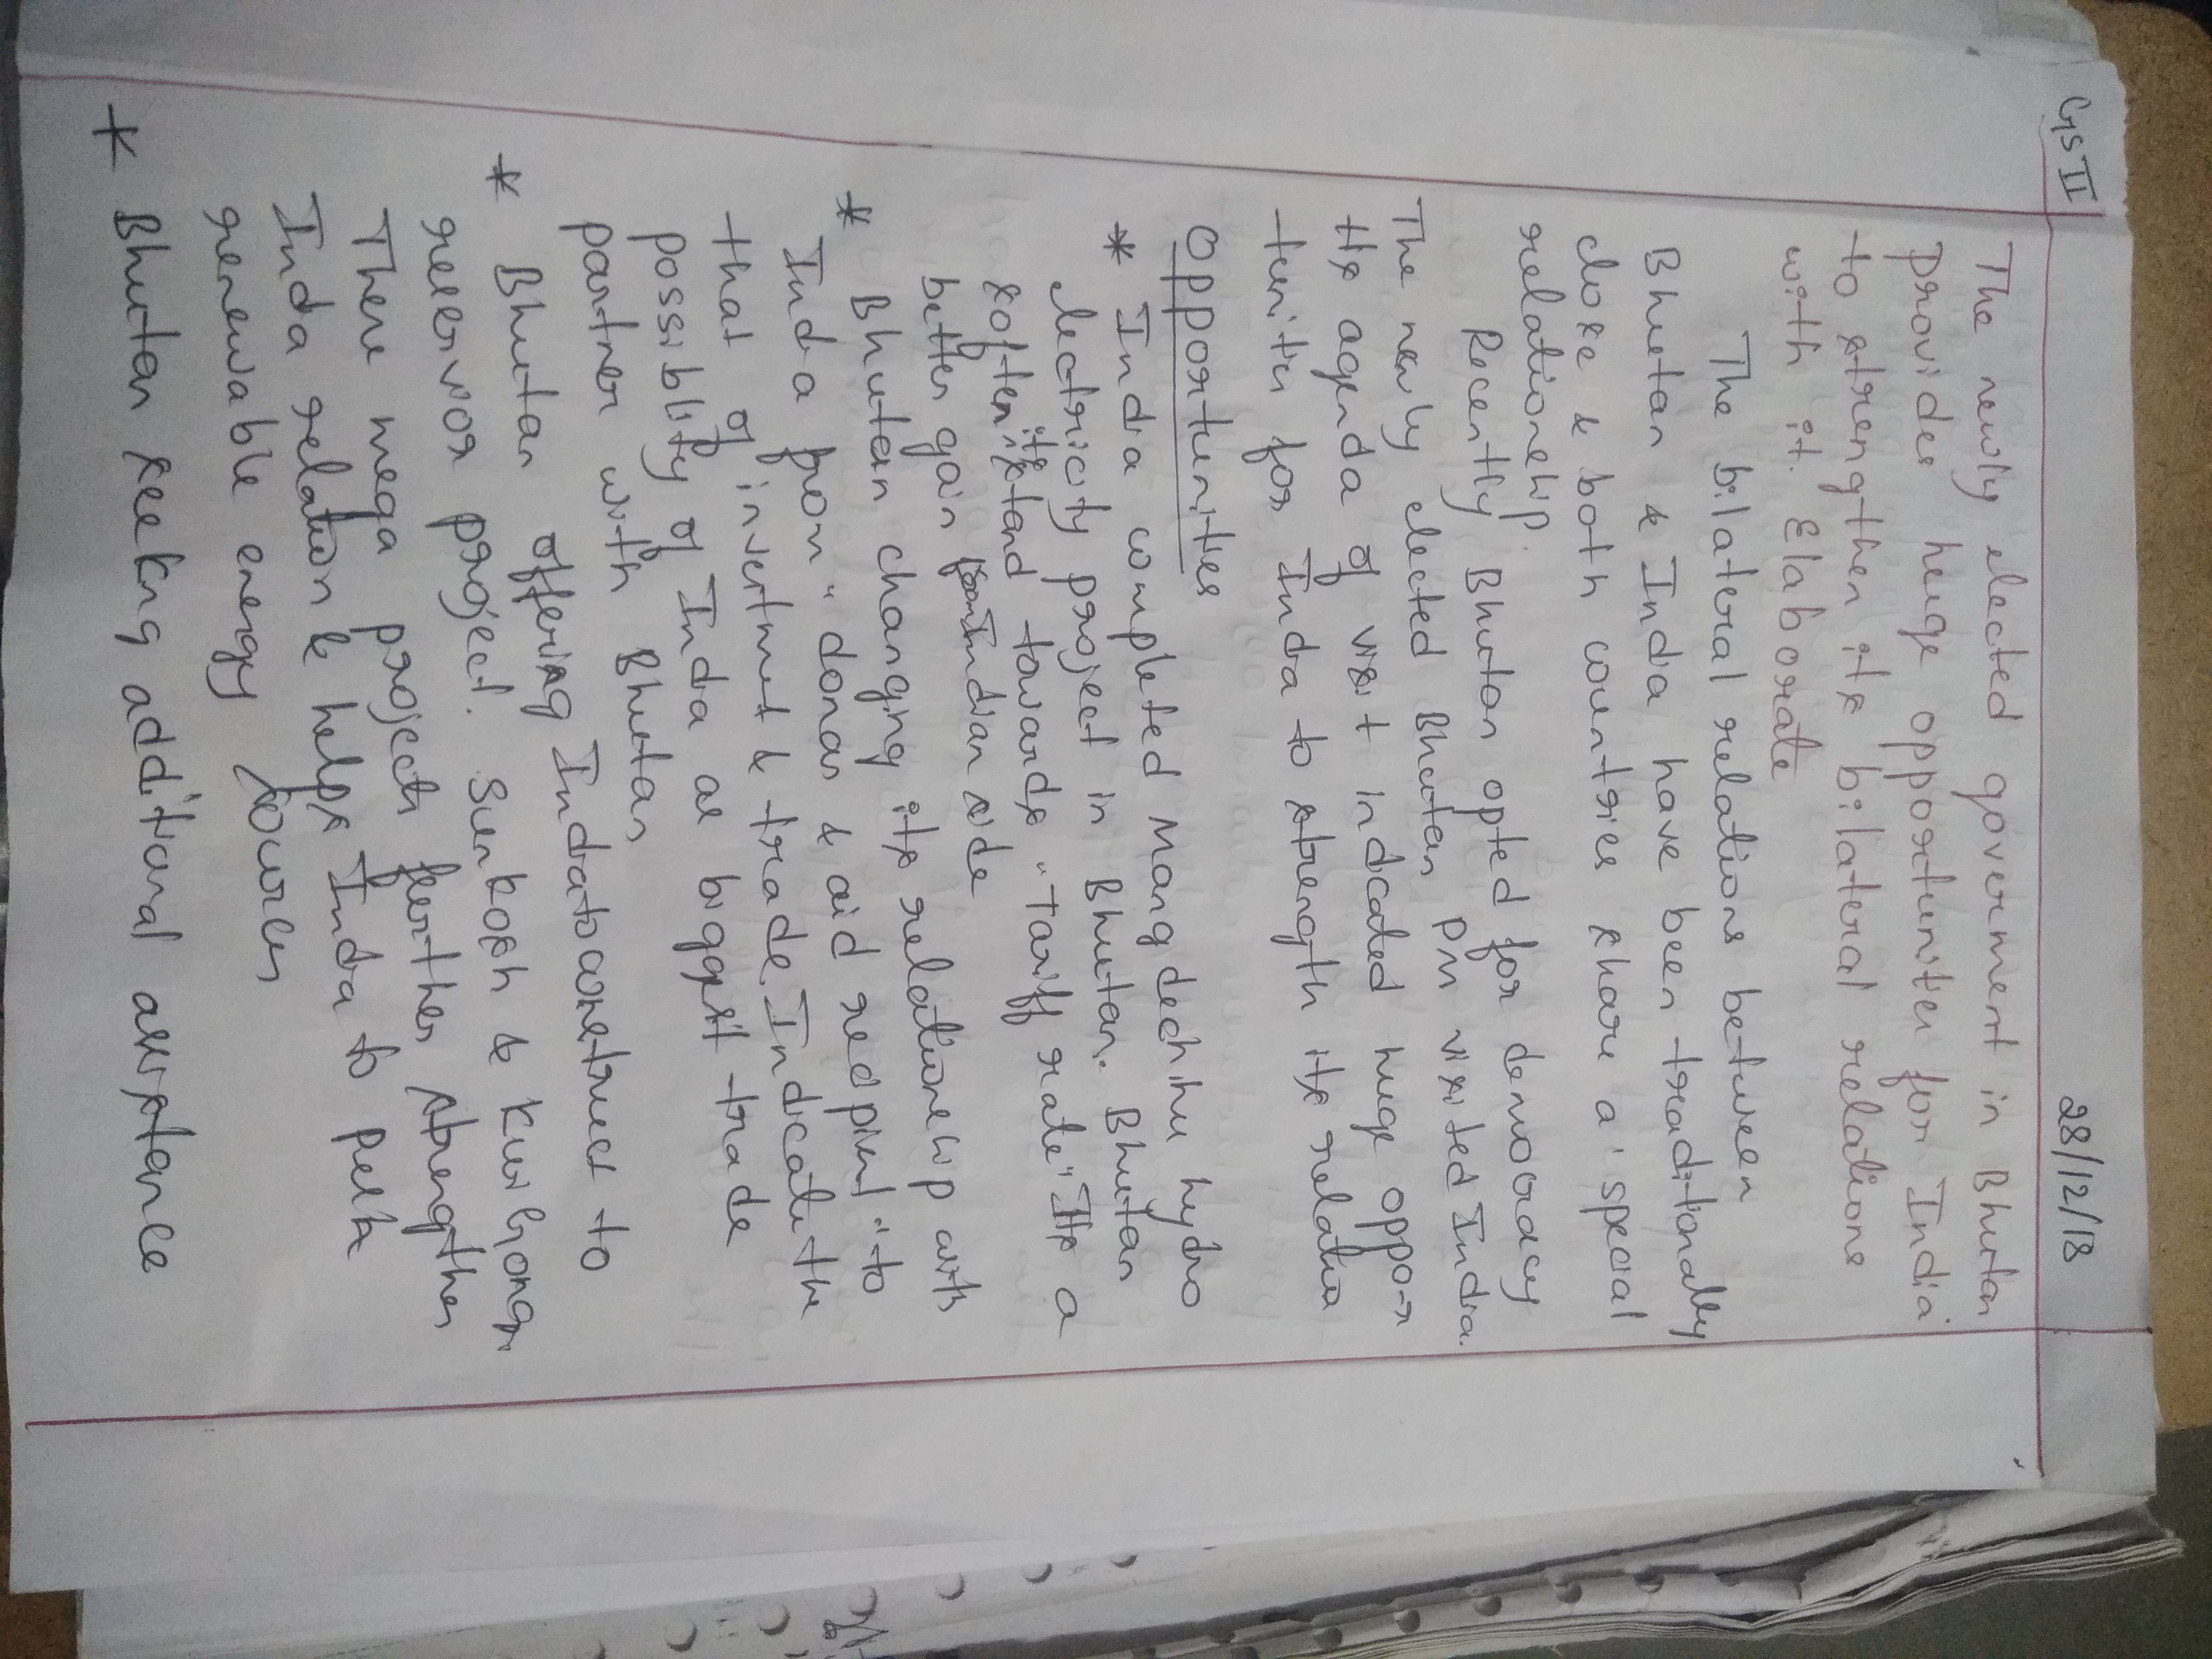 GS II 28/12/18
The newly elected government in Bhutan
provides huge opportunities for India
to strengthen its bilateral relations
with it. Elaborate
The bilateral relations between
Bhutan & India have been traditionally
close & both countries share a 'special
relationship.
Recently Bhutan opted for democracy
The newly elected Bhutan PM visited India.
Its agenda of visit indicated huge oppor
tunities for India to strength its relation
Opportunities
* India completed Mangdechhu hydro
electricity project in Bhutan. Bhutan
soften its stand towards "Tariff rate" Its a
better gain for Indian side
* Bhutan changing its relationship with
India from "donar & aid recipient" to
that of investment & trade. Indicate the
possiblity of India as biggest trade
partner with Bhutan
* Bhutan offering India to construct to
reservoir project. Sunkosh &
These mega projects further strengthen
India relation & helps India to
renewable energy sources
* Bhutan seeking additional assistance